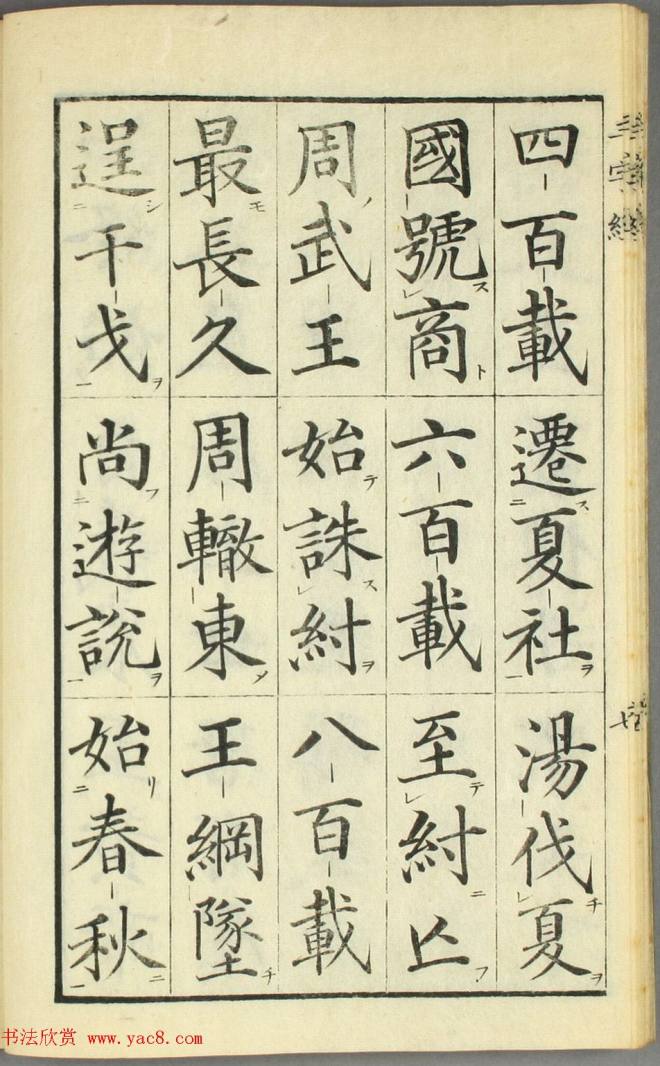 三字經
四百載 遷夏社 湯伐夏
國號商 六百載 至紂亾
周武王 始誅紂 八百載
最長久 周轍東 王綱墜
逞干戈 尚遊說 始春秋
书法欣赏 www.yac8.com